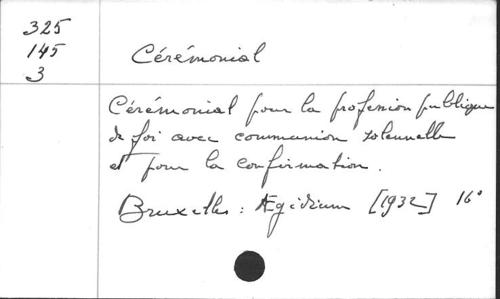 325
145
3
Cérémonial
Cérémonial pour la profession publique
de foi avec communion solennelle
et pour la confirmation.
Bruxelles : Ægidium [1932] 16°